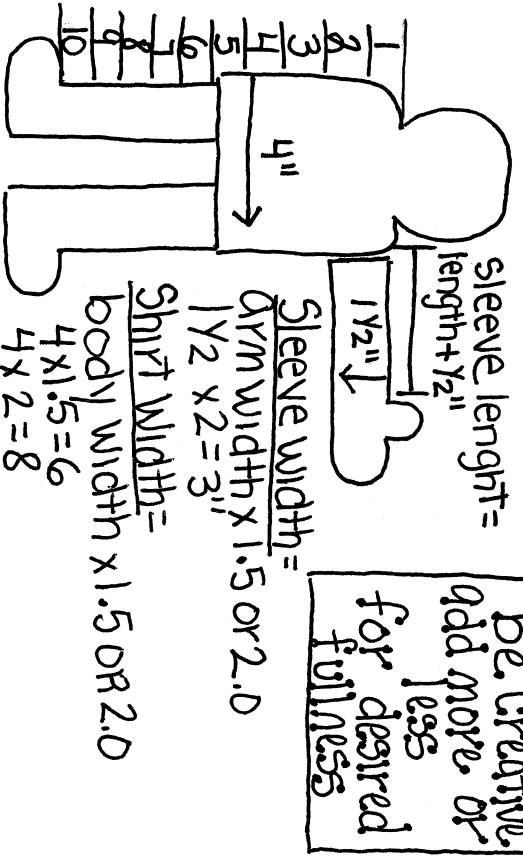 1
2
3
4
5
6
7
8
9
10
4"
sleeve lenght=
length+ 1/2"
1 1/2"
Sleeve width=
arm width x 1.5 or 2.0
1 1/2 x 2 = 3"
Shirt Width=
body width x 1.5 OR 2.0
4 x 1.5 = 6
4 x 2 = 8
be creative
add more or
less
for desired
fullness